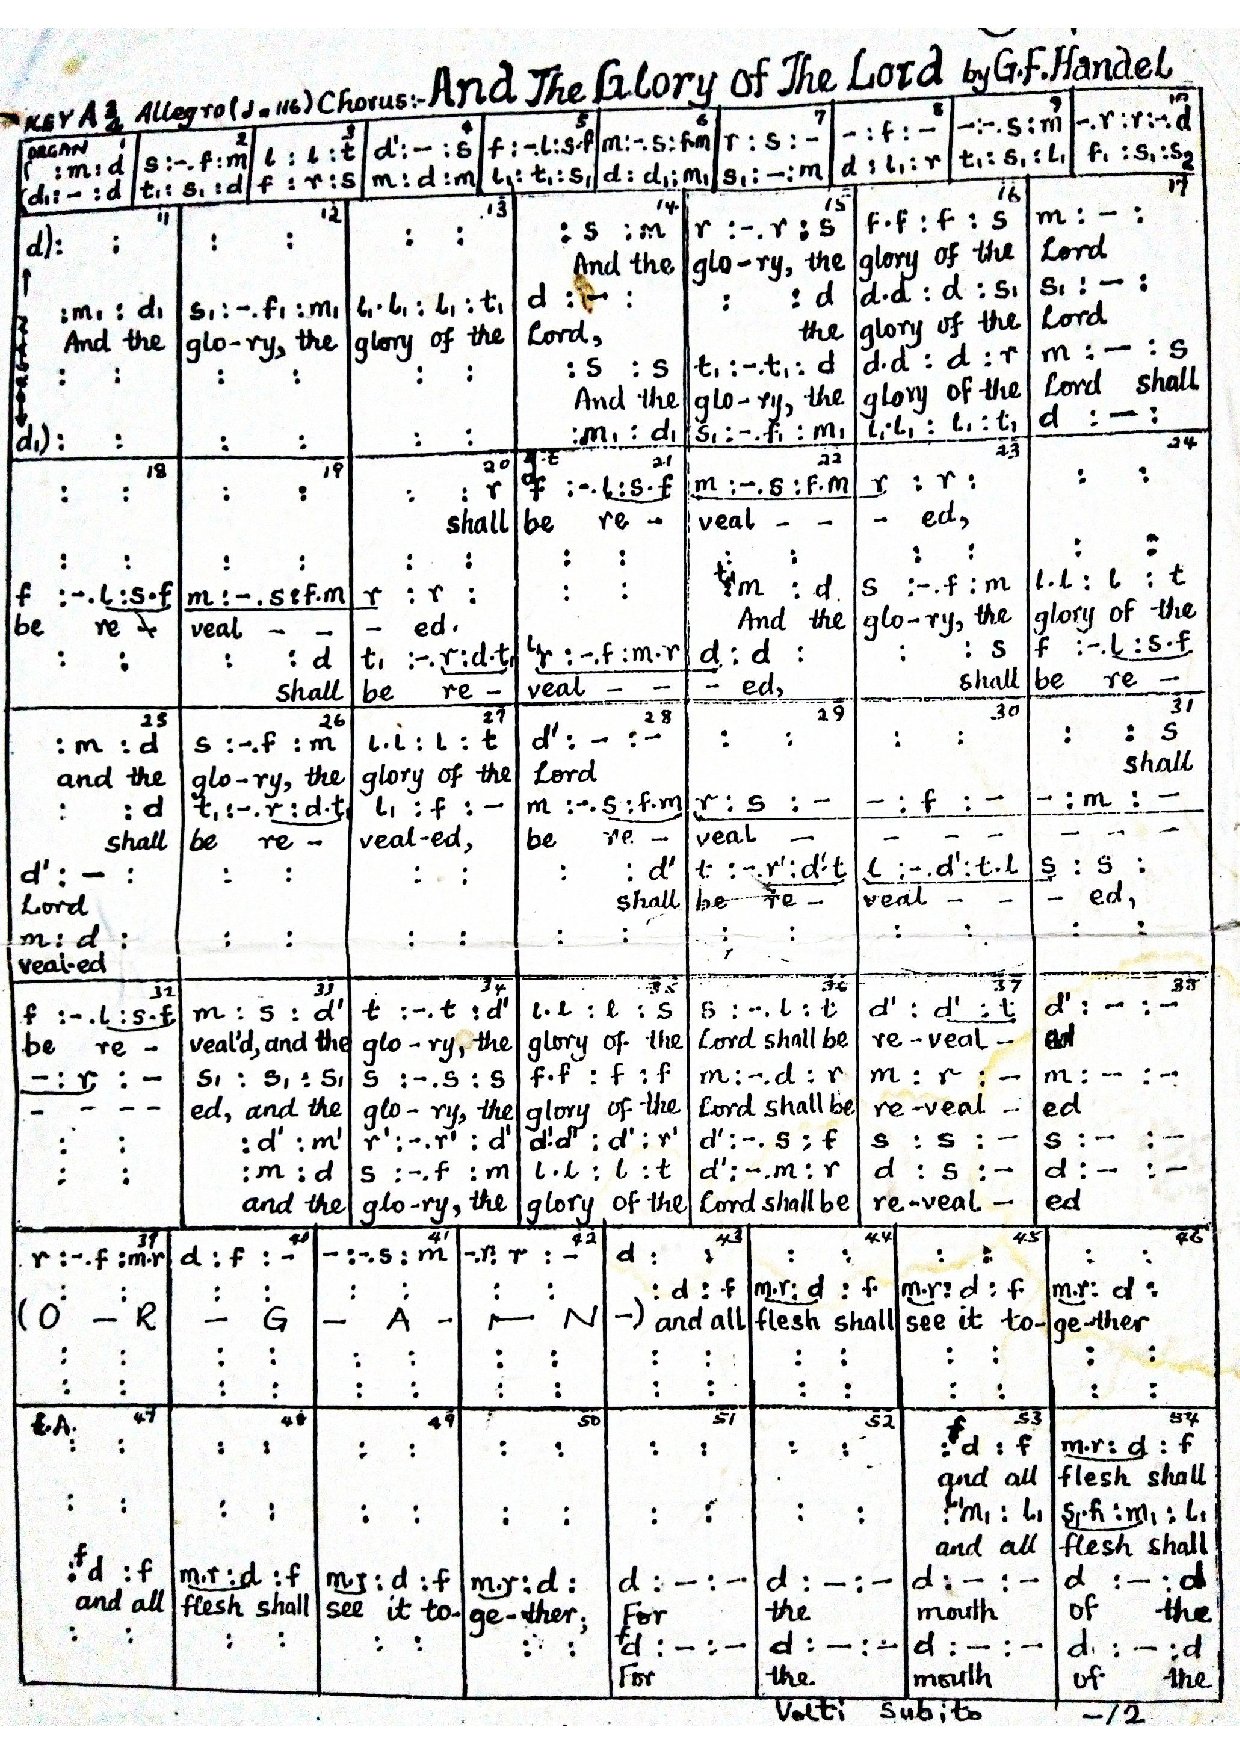 And The Glory of The Lord by G.F. Handel
KEY A 3/2 Allegro (♩=116) Chorus:-
ORGAN 1 2 3 4 5 6 7 8 9 10
: m : d | s :-. f : m | l : l : t | d' : - : s | f :-. l : s.f | m :-. s : f.m | r : s : - | - : f : - | - :-. s : m | -. r : r :-. d
d₁ : - : d | t₁ : s₁ : d | f : r : s | m : d : m | l₁ : t₁ : s₁ | d : d₁ : m₁ | s₁ : - : m | d : l₁ : r | t₁ : s₁ : l₁ | f₁ : s₁ : s₂
11 12 13 14 15 16 17
d) : : | : : | : : | : s : m | r :-. r : s | f.f : f : s | m : - :
And the | glo-ry, the | glory of the | Lord
: m₁ : d₁ | s₁ :-. f₁ : m₁ | l₁.l₁ : l₁ : t₁ | d : - : | : : d | d.d : d : s₁ | s₁ : - :
And the | glo-ry, the | glory of the | Lord, | the | glory of the | Lord
: : | : : | : : | : s : s | t₁ :-. t₁ : d | d.d : d : r | m : - : s
And the | glo-ry, the | glory of the | Lord shall
d₁) : : | : : | : : | : m₁ : d₁ | s₁ :-. f₁ : m₁ | l₁.l₁ : l₁ : t₁ | d : - :
18 19 20 21 22 23 24
: : | : : | : : r | f :-. l : s.f | m :-. s : f.m | r : r : | : :
shall | be re - | veal - - | - ed,
: : | : : | : : | : : | : : | : : | : :
f :-. l : s.f | m :-. s : f.m | r : r : | : : | m : d | s :-. f : m | l.l : l : t
be re - | veal - - | - ed. | And the | glo-ry, the | glory of the
: : | : : d | t₁ :-. r : d.t₁ | r :-. f : m.r | d : d : | : : s | f :-. l : s.f
shall | be re - | veal - - | - ed, | shall | be re -
25 26 27 28 29 30 31
: m : d | s :-. f : m | l.l : l : t | d' : - : - | : : | : : | : : s
and the | glo-ry, the | glory of the | Lord | shall
: : d | t₁ :-. r : d.t₁ | l₁ : f : - | m :-. s : f.m | r : s : - | - : f : - | - : m : -
shall | be re - | veal-ed, | be re - | veal - | - - - | - - - -
d' : - : | : : | : : | : : d' | t :-. r' : d'.t | l :-. d' : t.l | s : s :
Lord | shall | be re - | veal - - | - ed,
m : d : | : : | : : | : : | : : | : : | : :
veal-ed
32 33 34 35 36 37 38
f :-. l : s.f | m : s : d' | t :-. t : d' | l.l : l : s | s :-. l : t | d' : d' : t | d' : - : -
be re - | veal'd, and the | glo-ry, the | glory of the | Lord shall be | re-veal - | ed
- : r : - | s₁ : s₁ : s₁ | s :-. s : s | f.f : f : f | m :-. d : r | m : r : - | m : - : -
- - - - | ed, and the | glo-ry, the | glory of the | Lord shall be | re-veal - | ed
: : | : d' : m' | r' :-. r' : d' | d'.d' : d' : r' | d' :-. s : f | s : s : - | s : - : -
: : | : m : d | s :-. f : m | l.l : l : t | d' :-. m : r | d : s : - | d : - : -
and the | glo-ry, the | glory of the | Lord shall be | re-veal - | ed
39 40 41 42 43 44 45 46
r :-. f : m.r | d : f : - | - :-. s : m | -. r : r : - | d : : | : : | : : | : :
: : | : : | : : | : : | : d : f | m.r : d : f | m.r : d : f | m.r : d :
(O - R | - G | - A - | - N | -) and all | flesh shall | see it to- | ge-ther
: : | : : | : : | : : | : : | : : | : : | : :
: : | : : | : : | : : | : : | : : | : : | : :
t.A. 47 48 49 50 51 52 53 54
: : | : : | : : | : : | : : | : : | : fd : f | m.r : d : f
and all | flesh shall
: : | : : | : : | : : | : : | : : | : m₁ : l₁ | s₁.f₁ : m₁ : l₁
and all | flesh shall
: fd : f | m.r : d : f | m.r : d : f | m.r : d : | d : - : - | d : - : - | d : - : - | d : - : d
and all | flesh shall | see it to- | ge-ther; | For | the | mouth | of the
: : | : : | : : | : : | fd : - : - | d : - : - | d : - : - | d : - : d
For | the | mouth | of the
Volti Subito -/2